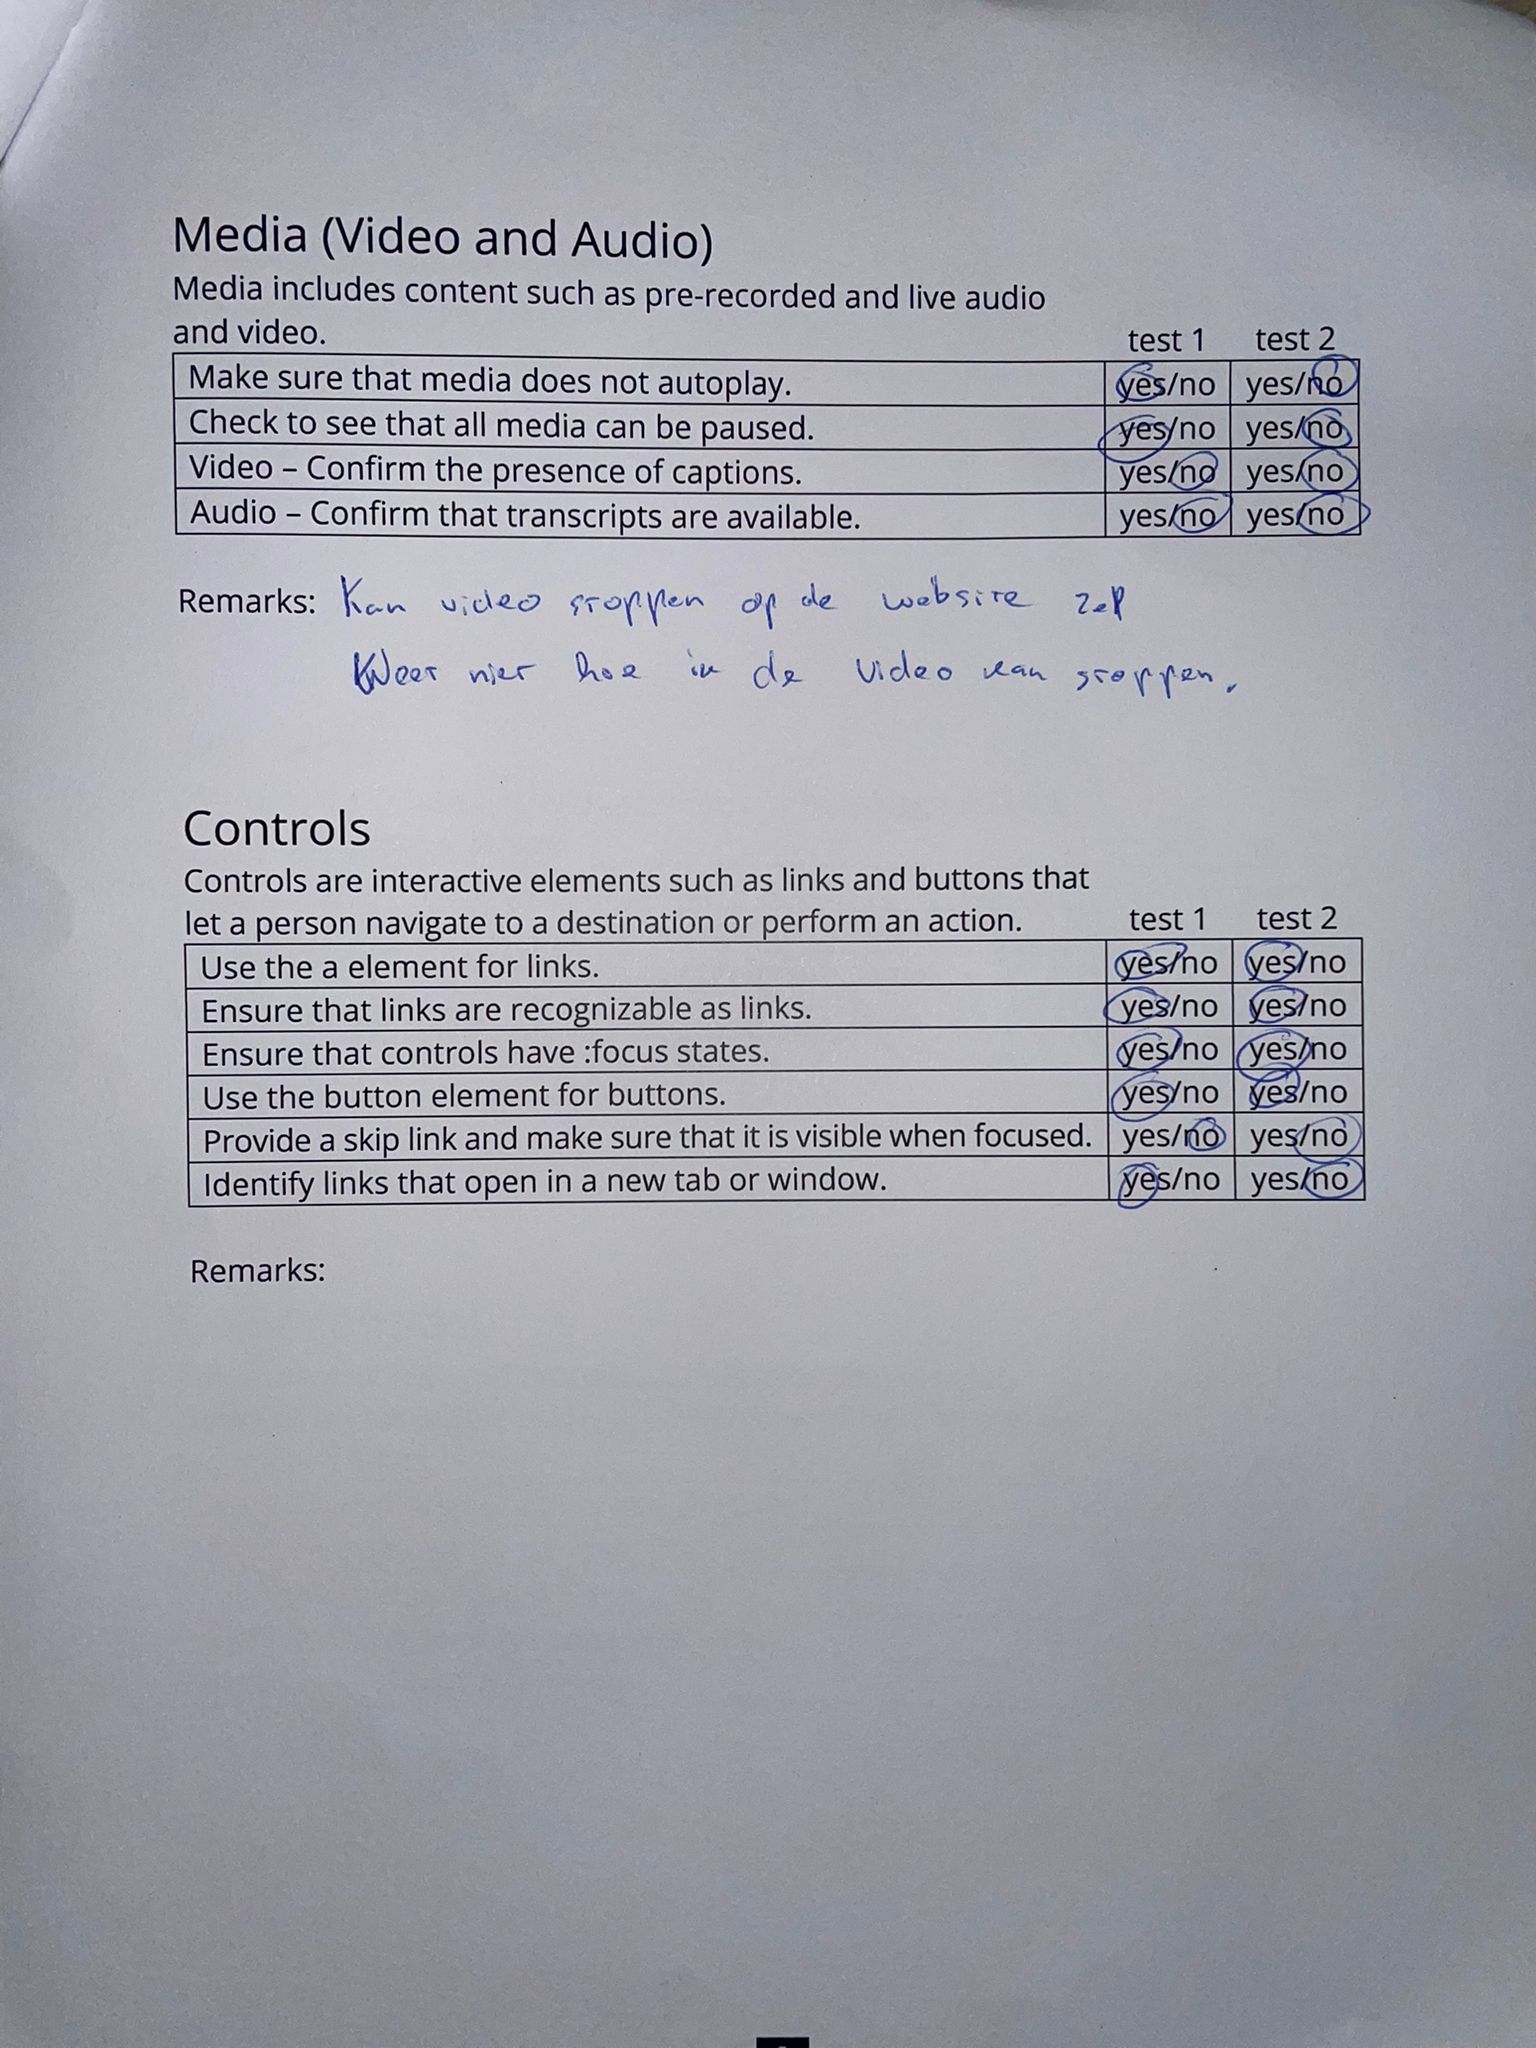 Media (Video and Audio)
Media includes content such as pre-recorded and live audio
and video. test 1 test 2
Make sure that media does not autoplay. yes/no yes/no
Check to see that all media can be paused. yes/no yes/no
Video – Confirm the presence of captions. yes/no yes/no
Audio – Confirm that transcripts are available. yes/no yes/no
Remarks: Kan video stoppen op de website zelf
Weet niet hoe in de video kan stoppen.
Controls
Controls are interactive elements such as links and buttons that
let a person navigate to a destination or perform an action. test 1 test 2
Use the a element for links. yes/no yes/no
Ensure that links are recognizable as links. yes/no yes/no
Ensure that controls have :focus states. yes/no yes/no
Use the button element for buttons. yes/no yes/no
Provide a skip link and make sure that it is visible when focused. yes/no yes/no
Identify links that open in a new tab or window. yes/no yes/no
Remarks: